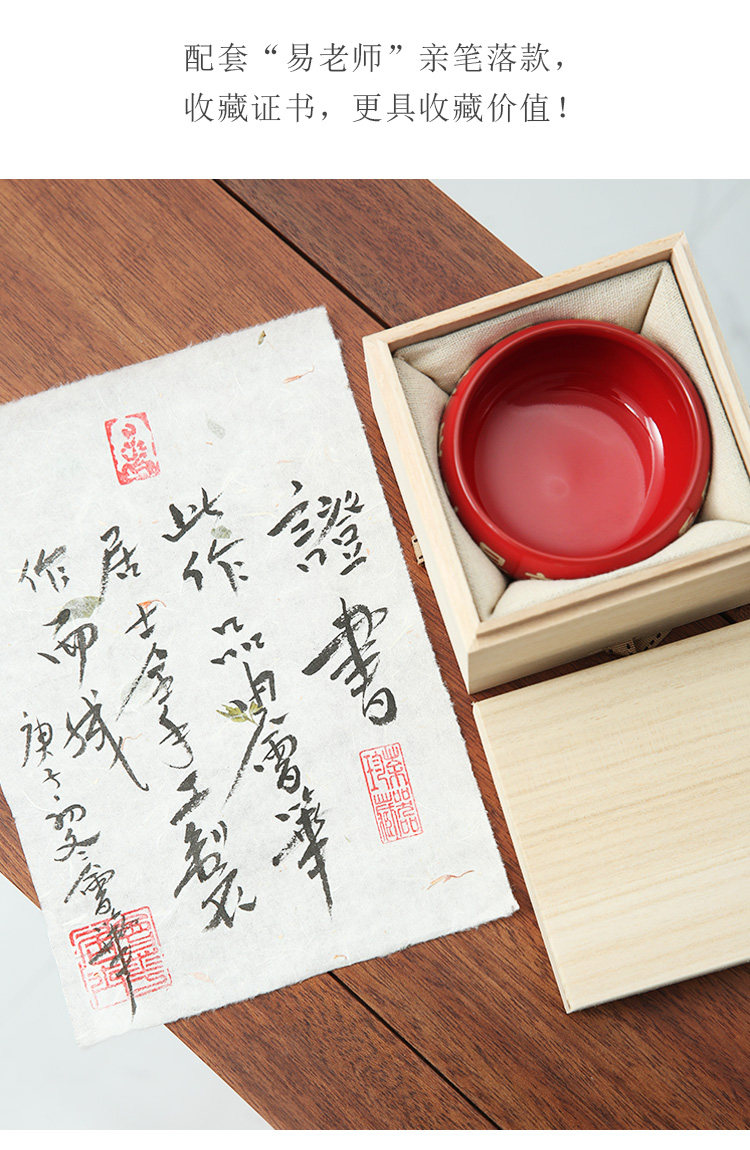 配套“易老师”亲笔落款，
收藏证书，更具收藏价值！
證書
此作品由雪華
居士全手工製
作而成
庚子初冬雪華